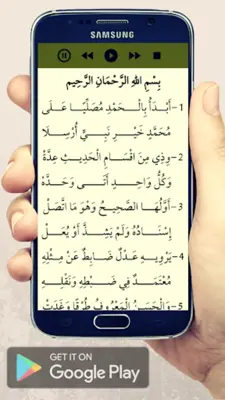 SAMSUNG
بِسْمِ اللهِ الرَّحْمَانِ الرَّحِيمِ
1- أَبْدَأُ بِالْحَمْدِ مُصَلِّيًا عَلَى
مُحَمَّدٍ خَيْرِ نَبِيٍّ أُرْسِلَا
2- وَذِي مِنَ اقْسَامِ الْحَدِيثِ عِدَّةْ
وَكُلُّ وَاحِدٍ أَتَى وَحَدَّهْ
3- أَوَّلُهَا الصَّحِيحُ وَهُوَ مَا اتَّصَلْ
إِسْنَادُهُ وَلَمْ يَشُذَّ أَوْ يُعَلْ
4- يَرْوِيهِ عَدْلٌ ضَابِطٌ عَنْ مِثْلِهِ
مُعْتَمَدٌ فِي ضَبْطِهِ وَنَقْلِهِ
5- وَالْحَسَنُ الْمَعْرُوفُ طُرْقًا وَغَدَتْ
GET IT ON
Google Play